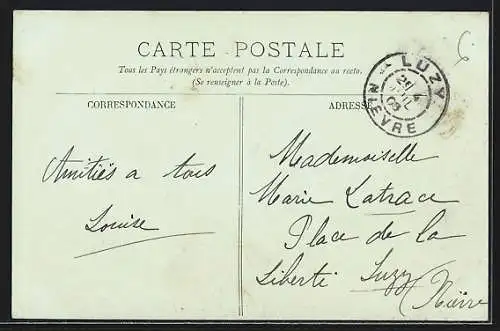 CARTE POSTALE
Tous les Pays étrangers n'acceptent pas la Correspondance au recto.
(Se renseigner à la Poste).
CORRESPONDANCE
ADRESSE
LUZY
NIEVRE
Amitiés a tous
Louise
Mademoiselle
Marie Latrace
Place de la
Liberté Luzy
(Nièvre
6